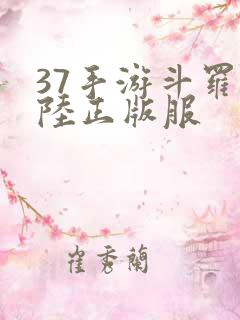 37手游斗羅
陸正版服
崔秀蘭